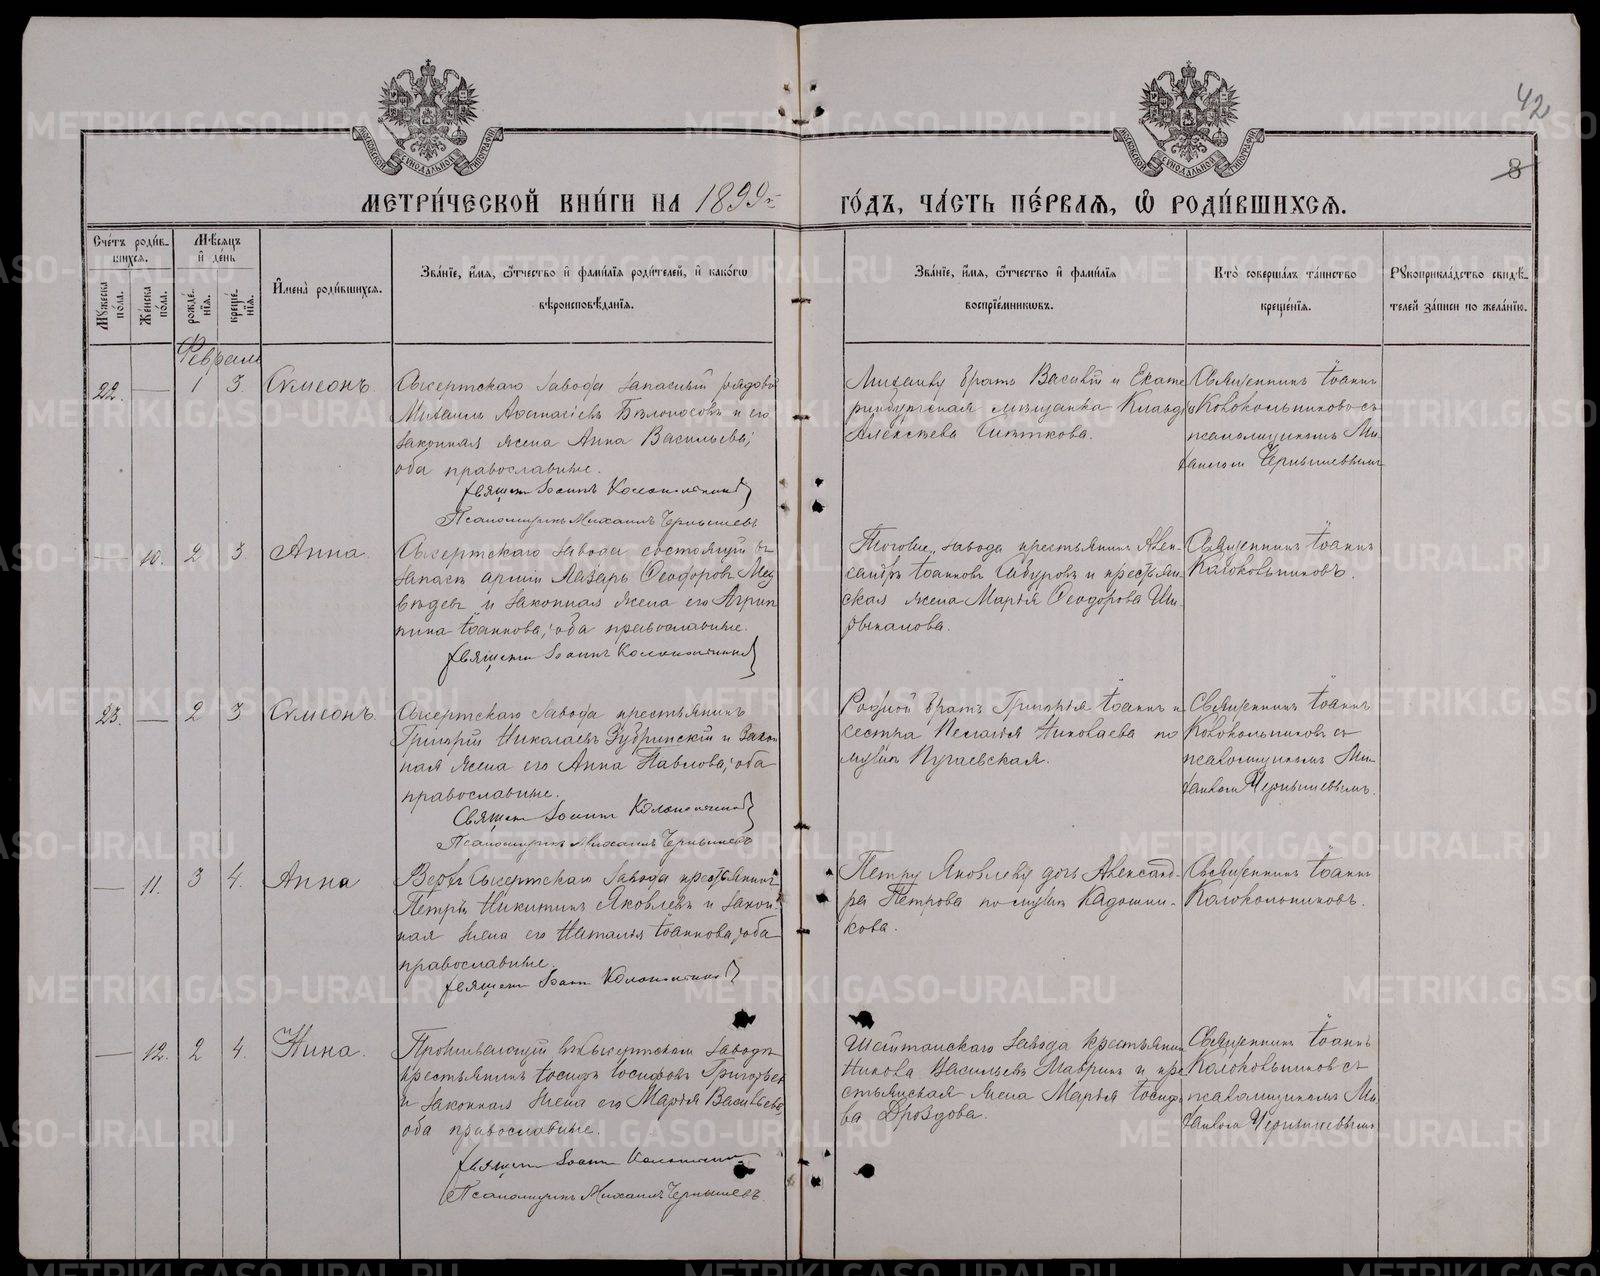 42
8
МЕТРИ́ЧЕСКОЙ КНИ́ГИ НА 1899 г.
ГО́ДЪ, ЧА́СТЬ ПЕ́РВАѦ, Ѡ РОДИ́ВШИХСѦ.
Счётъ роди́вшихся.
Мꙋжеска по́ла.
Же́нска по́ла.
Мѣсяцъ и҆ де́нь
рожде́нїя.
креще́нїя.
И҆мена̀ роди́вшихся.
Зва́нїе, и҆́мя, ѻ҆́тчество и҆ фами́лїя роди́телей, и҆ како́гѡ
вѣроисповѣ́данїя.
Зва́нїе, и҆́мя, ѻ҆́тчество и҆ фами́лїя
воспрїе́мникѡвъ.
Кто̀ соверша́лъ та́инство
креще́нїя.
Рꙋкоприкла́дство свидѣ́-
телей за́писи по жела́нїю.
Февраль
22. — 1 3 Симеонъ.
Сысертскаго завода запасный рядовой
Михаилъ Афанасіевъ Бѣлоносовъ и его
законная жена Анна Васильева;
оба православные.
Священ Іоаннъ Колокольников
Псаломщикъ Михаилъ Чернышевъ
Михаилу братъ Василій и Екате
ринбургская мѣщанка Клавд
Алексѣева
Священникъ Іоаннъ
Колокольниковъ съ
псаломщикомъ Ми
хаиломъ Чернышевымъ
— 10. 2 3. Анна.
Сысертскаго завода состоящій въ
запасѣ арміи Лазарь Ѳеодоровъ Мед
вѣдевъ и законная жена его Агрип
пина Іоаннова; оба православные.
Священ Іоаннъ Колокольников
завода крестьянинъ Алек-
сандръ Іоанновъ и крестьян-
ская жена Марія Ѳеодорова
Священникъ Іоаннъ
Колокольниковъ.
23. — 2 3 Симеонъ.
Сысертскаго завода крестьянинъ
Григорій Николаевъ Зубринскій и закон
ная жена его Анна Павлова; оба
православные.
Священ Іоаннъ Колокольников
Псаломщикъ Михаилъ Чернышевъ
Родной братъ Григорія Іоаннъ и
сестра Пелагія Николаева по
мужѣ Пугаевская.
Священникъ Іоаннъ
Колокольниковъ съ
псаломщикомъ Ми-
хаиломъ Чернышевымъ.
— 11. 3 4. Анна
Верхъ Сысертскаго завода крестьянинъ
Петръ Никитинъ Яковлевъ и закон-
ная жена его Наталія Іоаннова; оба
православные.
Священ Іоаннъ Колокольников
Петру Яковлеву дочь Александ-
ра Петрова по мужѣ Кадошни-
кова.
Священникъ Іоаннъ
Колокольниковъ.
— 12. 2 4. Нина.
Проживающій въ Сысертскомъ заводѣ
крестьянинъ Іосифъ Іосифовъ Григорьев
и законная жена его Марія Васильева;
оба православные.
Священ Іоаннъ Колокольников
Псаломщикъ Михаилъ Чернышевъ.
Шайтанскаго завода крестьянин
Никола Васильевъ Мавринъ и кре
стьянская жена Марія Іосифо
ва Дроздова.
Священникъ Іоаннъ
Колокольниковъ съ
псаломщикомъ Ми
хаиломъ Чернышевымъ
METRIKI.GASO-URAL.RU